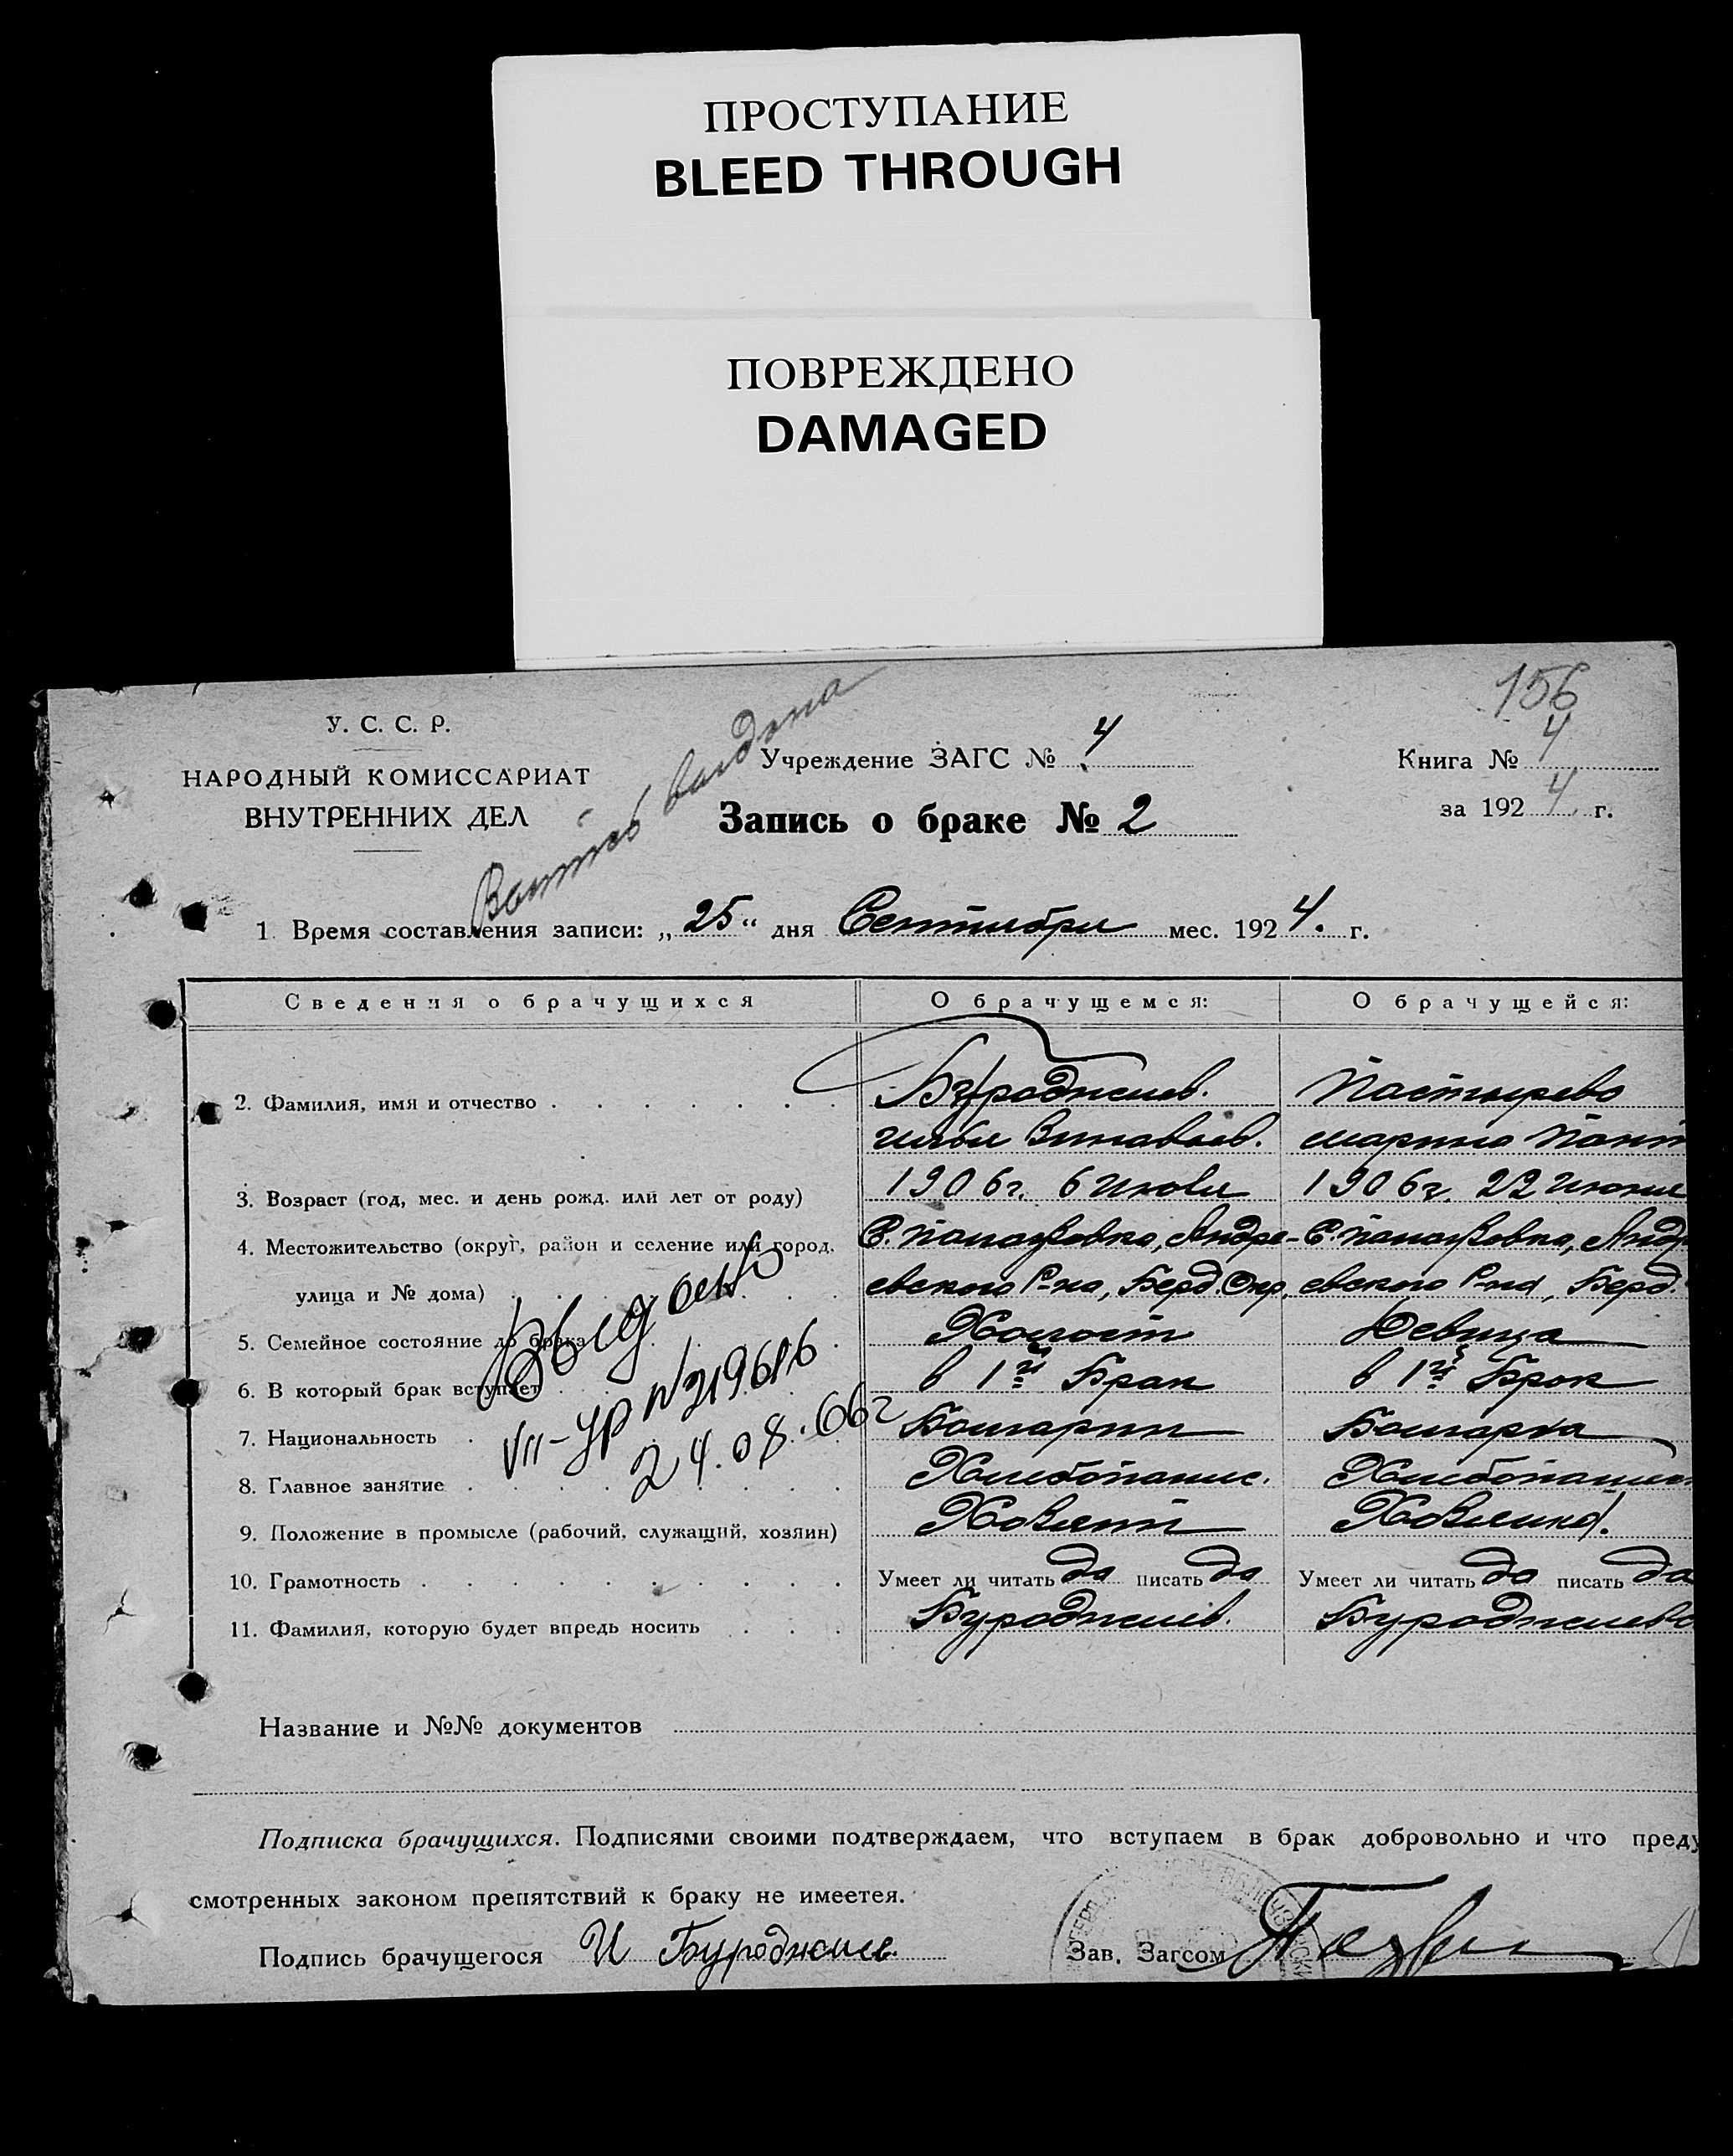 ПРОСТУПАНИЕ
BLEED THROUGH
ПОВРЕЖДЕНО
DAMAGED
156
У. С. С. Р.
НАРОДНЫЙ КОМИССАРИАТ
ВНУТРЕННИХ ДЕЛ
Учреждение ЗАГС № 4
Книга № 4
за 1924 г.
Запись о браке № 2
выдана
1. Время составления записи: „25“ дня Сентября мес. 1924. г.
Сведения о брачущихся О брачущемся: О брачущейся:
2. Фамилия, имя и отчество Бурoджиев. Пастырева
Илья Зиновьев. Марина Пант
3. Возраст (год, мес. и день рожд. или лет от роду) 1906г. 6 Июля 1906г. 22 Июня
4. Местожительство (округ, район и селение или город, С. Полоузовка, Андре- С. Полоузовка, Андр
улица и № дома) евского Р-на, Берд. Окр. евского Р-на, Берд.
5. Семейное состояние до брака Холост Девица
6. В который брак вступает в 1й Брак в 1й Брак
7. Национальность Болгарин Болгарка
8. Главное занятие Хлебопашес. Хлебопашес
9. Положение в промысле (рабочий, служащий, хозяин) Хозяин Хозяйка.
10. Грамотность Умеет ли читать да писать да Умеет ли читать да писать да
11. Фамилия, которую будет впредь носить Буроджиев. Буроджиева
Выдано
VII-УР №319686
24.08.66г
Название и №№ документов
Подписка брачущихся. Подписями своими подтверждаем, что вступаем в брак добровольно и что преду
смотренных законом препятствий к браку не имеетея.
Подпись брачущегося И Буроджиев.
Зав. Загсом